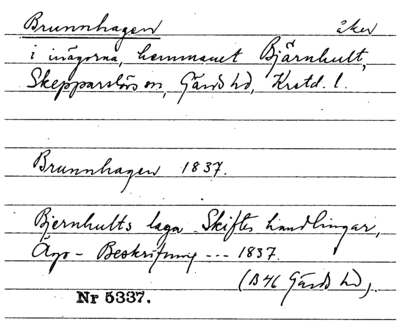 Brunnhagen åker
i inägorna, hemmanet Bjärnhult,
Skepparslövs sn, Gärds hd, Krstd. l.
Brunnhagen 1837.
Bjernhults laga Skiftes handlingar,
Ägo-Beskrifning --- 1837.
(B46 Gärds hd).
Nr 5337.